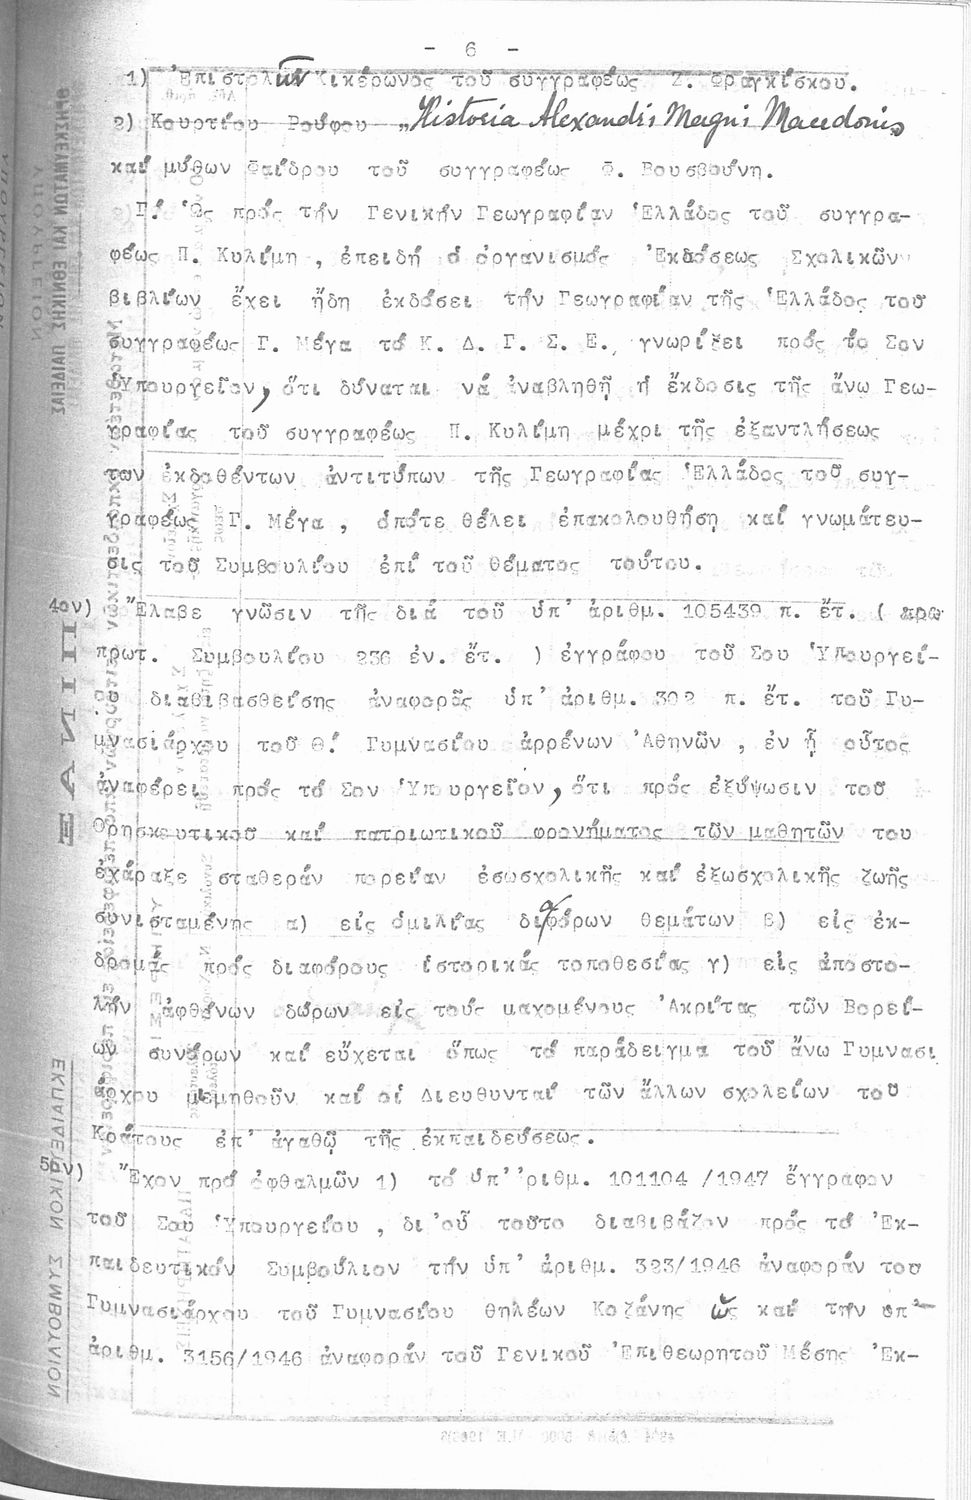 - 6 -
1) Ἐπιστολῶν Κικέρωνος τοῦ συγγραφέως Ζ. Φραγκίσκου.
2) Κουρτίου Ρούφου „Historia Alexandri Magni Macedonis„
καί μύθων Φαίδρου τοῦ συγγραφέως Φ. Βουσβούνη.
Γ΄ Ὡς πρός τήν Γενικήν Γεωγραφίαν Ἑλλάδος τοῦ συγγρα-
φέως Π. Κυλίμη , ἐπειδή ὁ ὀργανισμός Ἐκδόσεως Σχολικῶν
βιβλίων ἔχει ἤδη ἐκδόσει τήν Γεωγραφίαν τῆς Ἑλλάδος τοῦ
συγγραφέως Γ. Μέγα τό Κ. Δ. Γ. Σ. Ε. γνωρίζει πρός τό Σον
Ὑπουργεῖον, ὅτι δύναται νά ἀναβληθῇ ἡ ἔκδοσις τῆς ἄνω Γεω-
γραφίας τοῦ συγγραφέως Π. Κυλίμη μέχρι τῆς ἐξαντλήσεως
των ἐκδοθέντων ἀντιτύπων τῆς Γεωγραφίας Ἑλλάδος τοῦ συγ-
γραφέως Γ. Μέγα , ὁπότε θέλει ἐπακολουθήσῃ καί γνωμάτευ-
σις τοῦ Συμβουλίου ἐπί τοῦ θέματος τούτου.
4ον) Ἔλαβε γνῶσιν τῆς διά τοῦ ὑπ' ἀριθμ. 105439 π. ἔτ. ( πρω
πρωτ. Συμβουλίου 236 ἐν. ἔτ. ) ἐγγράφου τοῦ Σου Ὑπουργεί-
ου διαβιβασθείσης ἀναφορᾶς ὑπ' ἀριθμ. 302 π. ἔτ. τοῦ Γυ-
μνασιάρχου τοῦ Θ΄ Γυμνασίου ἀρρένων Ἀθηνῶν , ἐν ᾗ οὗτος
ἀναφέρει πρός τό Σον Ὑπουργεῖον, ὅτι πρός ἐξύψωσιν τοῦ
Θρησκευτικοῦ καί πατριωτικοῦ φρονήματος τῶν μαθητῶν του
ἐχάραξε σταθεράν πορείαν ἐσωσχολικῆς καί ἐξωσχολικῆς ζωῆς
συνισταμένης α) εἰς ὁμιλίας διαφόρων θεμάτων β) εἰς ἐκ-
δρομάς πρός διαφόρους ἱστορικάς τοποθεσίας γ) εἰς ἀποστο-
λήν ἀφθόνων δώρων εἰς τούς μαχομένους Ἀκρίτας τῶν Βορεί-
ων συνόρων καί εὔχεται ὅπως τό παράδειγμα τοῦ ἄνω Γυμνασι
άρχου μιμηθοῦν καί οἱ Διευθυνταί τῶν ἄλλων σχολείων τοῦ
Κράτους ἐπ' ἀγαθῷ τῆς ἐκπαιδεύσεως.
5ον) Ἔχον πρό ὀφθαλμῶν 1) τό ὑπ' ἀριθμ. 101104 /1947 ἔγγραφον
τοῦ Σου Ὑπουργείου , δι'οὗ τοῦτο διαβιβάζον πρός τό Ἐκ-
παιδευτικόν Συμβούλιον τήν ὑπ' ἀριθμ. 323/1946 ἀναφοράν του
Γυμνασιάρχου τοῦ Γυμνασίου θηλέων Κοζάνης ὡς καί τήν ὑπ'
ἀριθμ. 3156/1946 ἀναφοράν τοῦ Γενικοῦ Ἐπιθεωρητοῦ Μέσης Ἐκ-